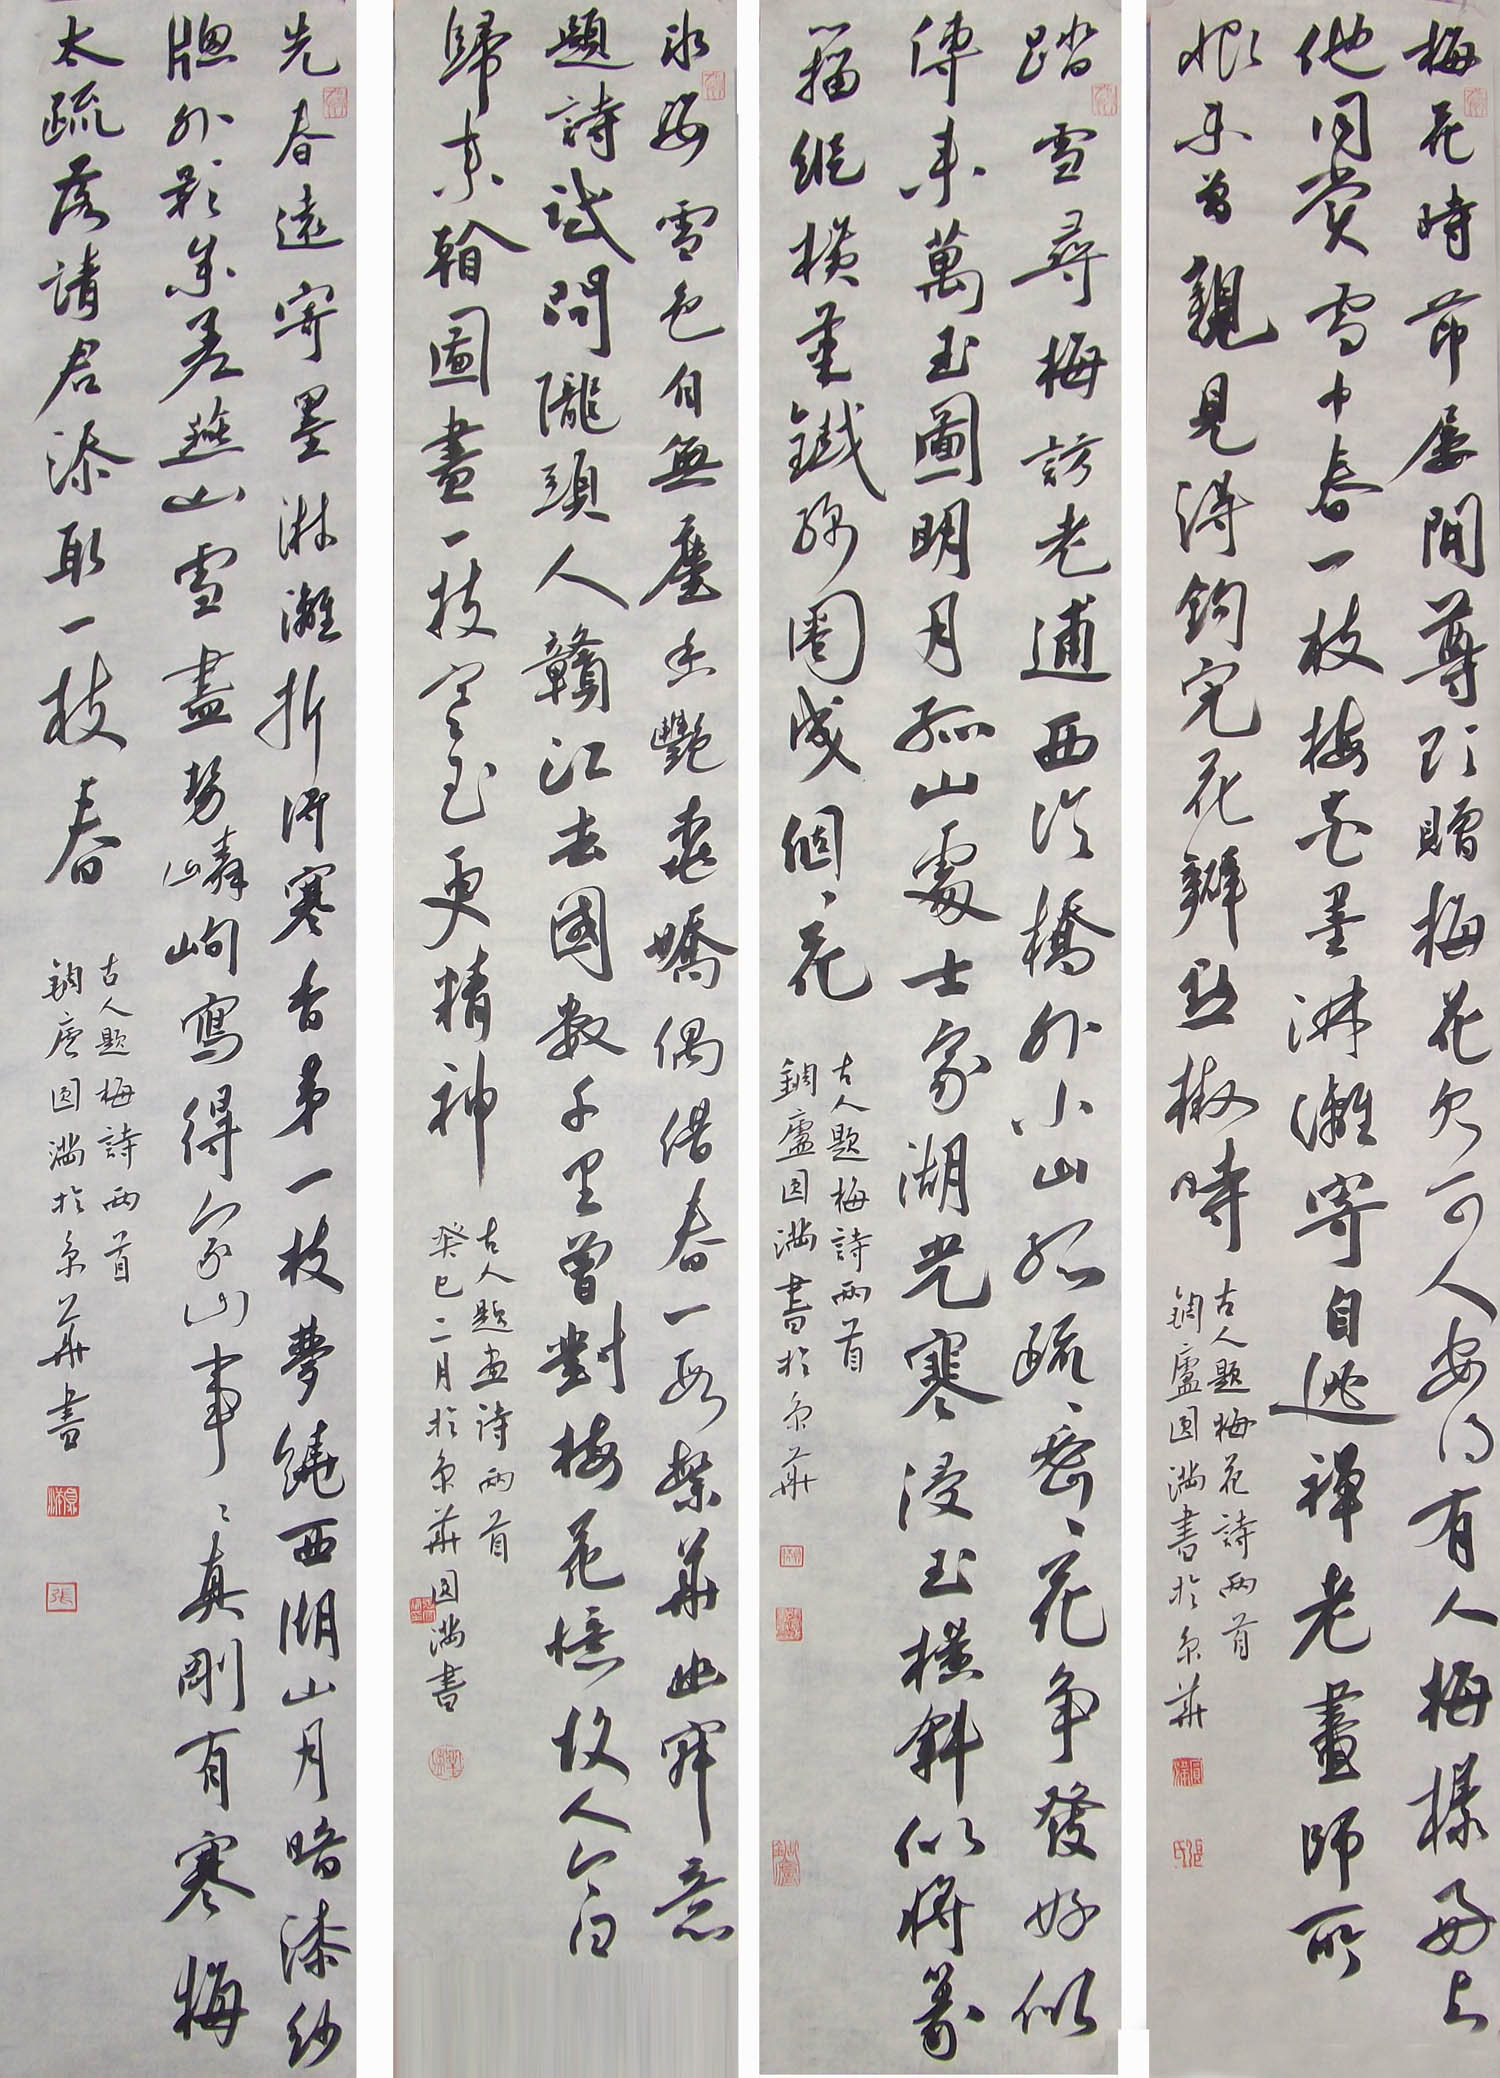 梅花時節屢開尊頭贈梅花欠可人安得有人梅樣好與
他同賞雪中春一枝梅花墨淋漓寄自逃禪老畫師所
恨未曾親見得鉤完花瓣點椒時
古人題梅花詩兩首
鋼廬圓滿書於京華
踏雪尋梅訪老逋西泠橋外小山孤疏、密、花爭發好似
傳來萬玉圖明月孤山處士家湖光寒浸玉橫斜似將篆
籀縱橫筆鐵線圈成個、花
古人題梅詩兩首
鋼廬圓滿書於京華
冰姿雪色自無塵冷艷嬌偶借春一段繁華幽寂意
題詩試問隴頭人贛江去國數千里曾對梅花憶故人今白
歸來翰圖畫一枝寒玉更精神
古人題畫詩兩首
癸巳二月於京華圓滿書
先春遠寄墨淋漓折得寒香第一枝夢繞西湖山月暗漆紗
牕外影參差燕山雪盡勢嶙峋寫得家山事、真剛有寒梅
太疏落請君添取一枝春
古人題梅詩兩首
鋼廬圓滿於京華書